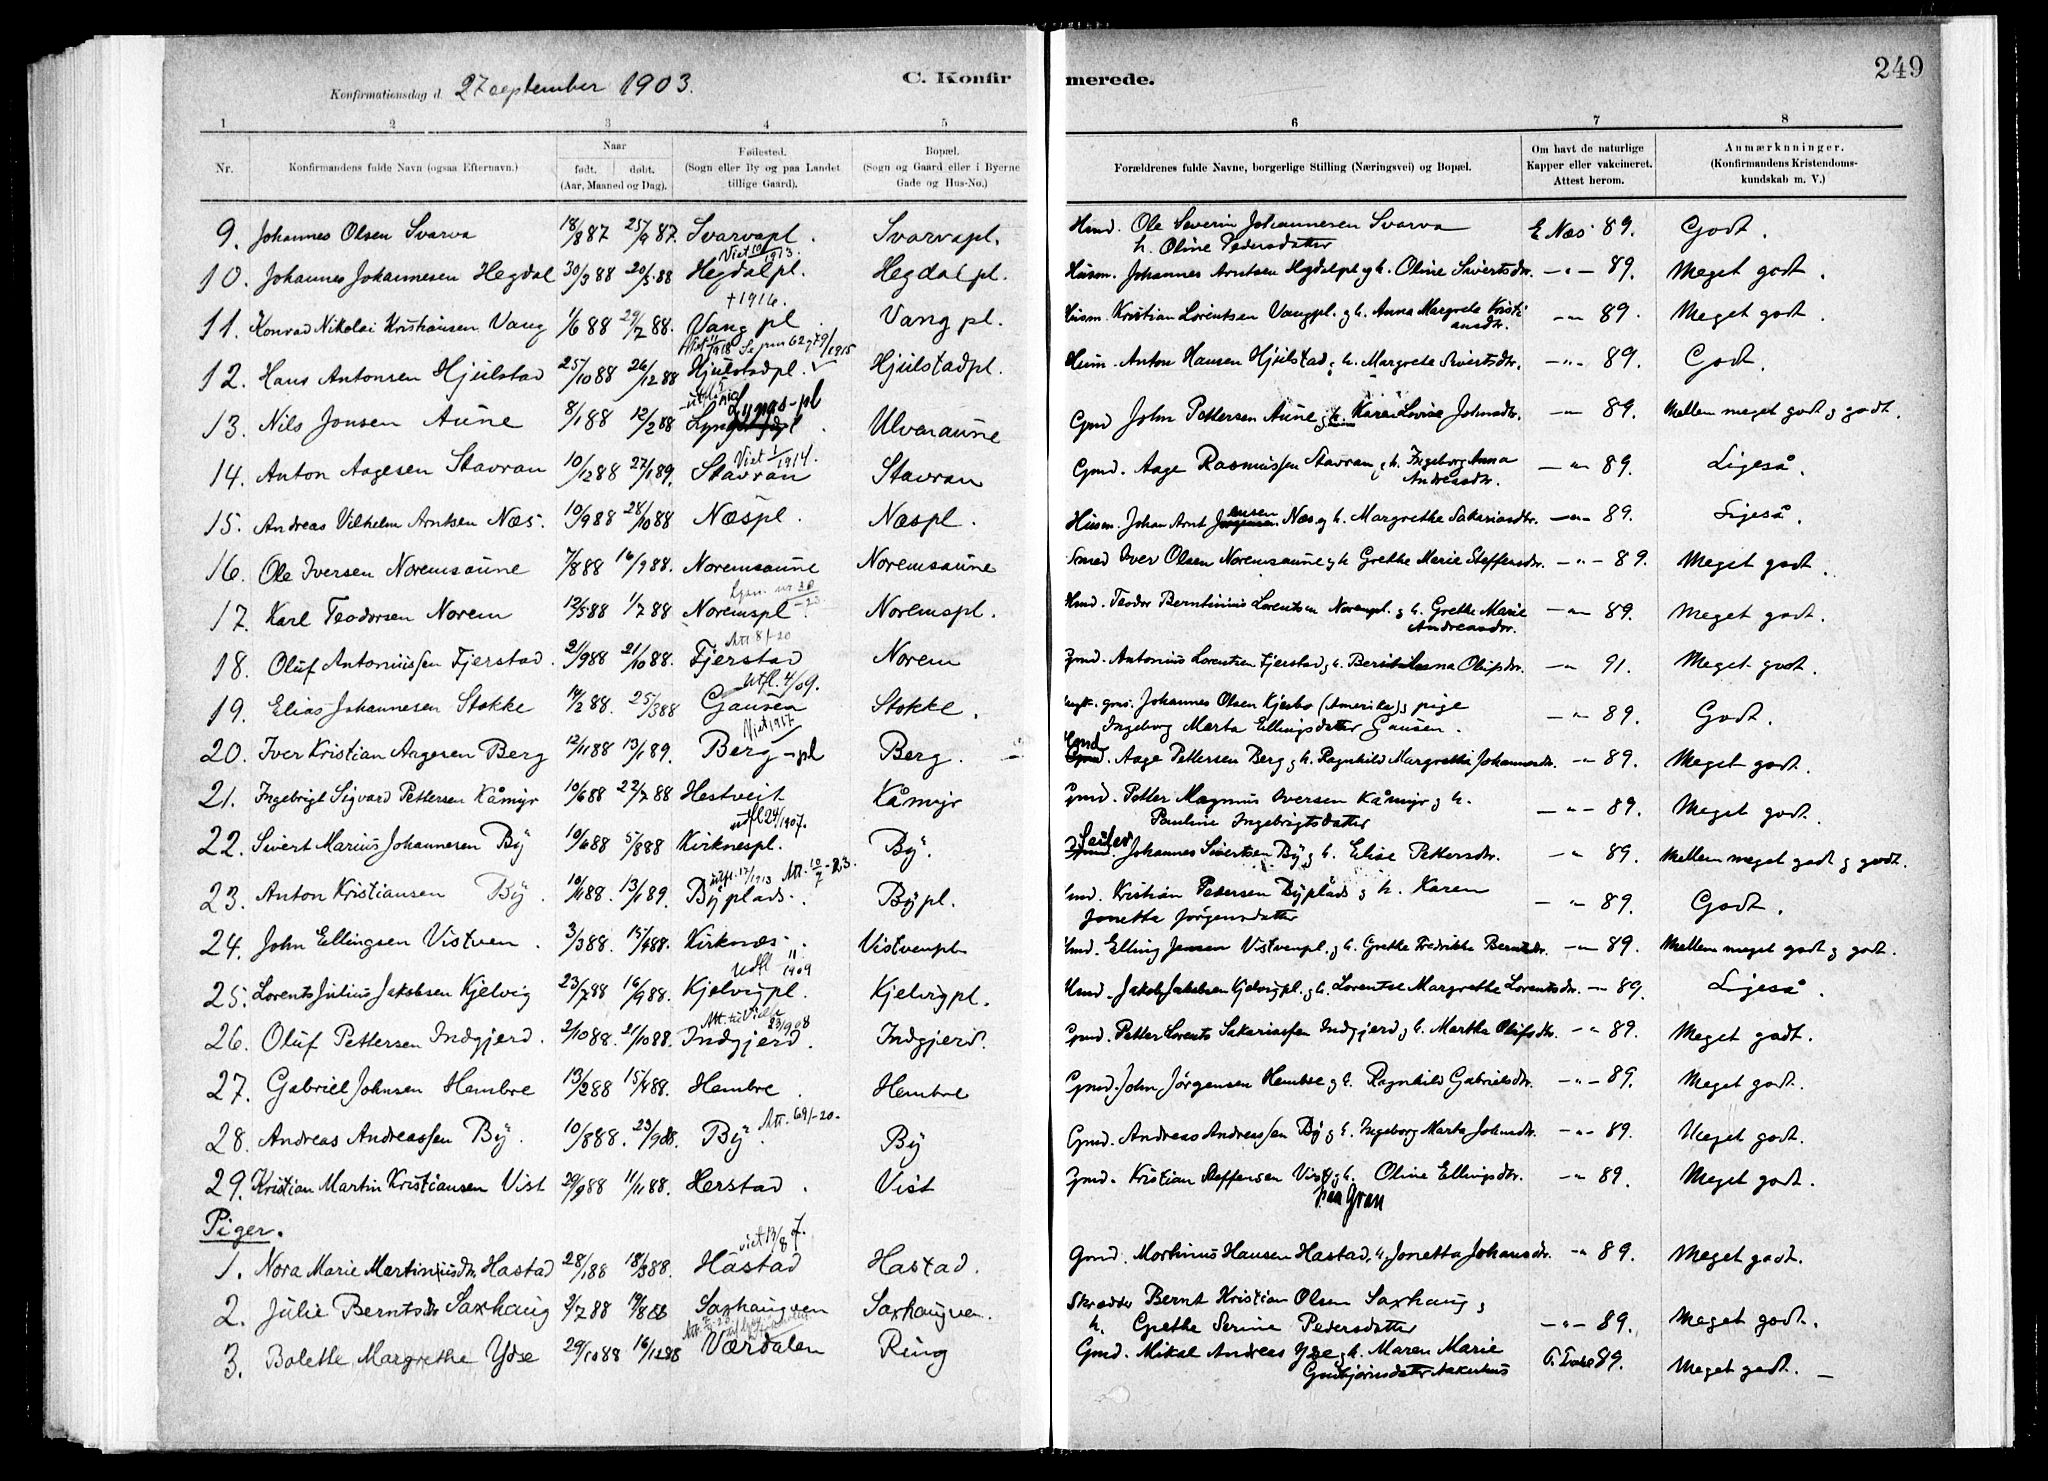 249
Konfirmationsdag d. 27 september 1903.
C. Konfirmerede.
1 2 3 4 5 6 7 8
Nr. Konfirmandens fulde Navn (ogsaa Efternavn). Naar født. døbt. (Aar, Maaned og Dag). Fødested. (Sogn eller By og paa Landet tillige Gaard). Bopæl. (Sogn og Gaard eller i Byerne Gade og Hus-No.) Forældrenes fulde Navne, borgerlige Stilling (Næringsvei) og Bopæl. Om havt de naturlige Kapper eller vakcineret. Attest herom. Anmærkninger. (Konfirmandens Kristendoms-kundskab m. V.)
9. Johannes Olsen Svarva 18/8 87 25/9 87. Svarvapl. Svarvapl. Hmd. Ole Severin Johannesen Svarva E Næs 89. Godt.
h. Oline Pedersdatter
Viet 10/1913.
10. Johannes Johannesen Hegdal 30/3 88 20/5 88 Hegdalpl. Hegdalpl. Husm. Johannes Arntsen Hegdalpl g h. Oline Sivertsdtr. -"- 89. Meget godt.
+ 1916.
11. Konrad Nikolai Kristiansen Vang 1/6 88 29/7 88. Vang pl. Vang pl. Husm. Kristian Lorentsen Vangpl. g h. Anna Margrete Kristiansdtr. -"- 89. Meget godt.
12. Hans Antonsen Hjulstad 25/10 88 26/12 88 Hjulstadpl. Hjulstadpl. Husm. Anton Hansen Hjulstad g h. Margrete Sivertsdtr. -"- 89. Godt.
13. Nils Jonsen Aune 8/1 88 12/2 88 Lyngås-pl. Ulvaraune Gmd John Pettersen Aune g h. Karen Lovise Johnsdtr. -"- 89. Mellem meget godt g godt.
Viet 1/1914.
14. Anton Aagesen Stavran 10/12 88 27/1 89. Stavran Stavran Gmd. Aage Rasmussen Stavran g h. Ingeborg Anna Andreasdtr. -"- 89. Ligeså.
15. Andreas Vilhelm Arntsen Næs. 10/9 88 28/10 88 Næspl. Næspl. Husm. Johan Arnt Næs g h. Margrethe Sakariasdtr. -"- 89. Ligeså.
16. Ole Iversen Noremsaune 7/8 88 16/9 88. Noremsaune Noremsaune Iver Olsen Noremsaune g h Grethe Marie Steffensdtr. -"- 89. Meget godt.
17. Karl Teodorsen Norem 12/5 88 1/7 88 Noremspl. Noremspl. Hmd. Teodor Berntinius Lorentsen Norempl. g h. Grethe Marie Andreasdtr. -"- 89. Meget godt.
Att 8/1-20
18. Oluf Antoniussen Fjerstad. 2/9 88 21/10 88. Fjerstad Norem Gmd. Antonius Lorentsen Fjerstad g h. Olufsdtr. -"- 91. Meget godt.
Utfl. 4/09.
19. Elias Johannesen Stokke 14/2 88. 25/3 88 Gausen Stokke. Johannes Olsen Kjesbo (Amerika) g pige -"- 89. Godt.
Ingeborg Marta Ellingsdatter Gausen.
Viet 1917
20. Iver Kristian Aagesen Berg 12/11 88 13/1 89. Berg-pl Berg. Aage Pettersen Berg g h. Ragnhild Margrethe Johannesdtr. -"- 89. Meget godt.
21. Ingebrigt Sigvard Pettersen Kåmyr 10/6 88 22/7 88 Hestveit Kåmyr Gmd. Petter Magnus Iversen Kåmyr g h. -"- 89. Meget godt.
Pauline Ingebrigtsdatter
utfl 24/1907.
22. Sivert Marius Johannesen By 10/6 88 5/8 88 Kirknespl. By. Johannes Sivertsen By g h. Elise Pettersdtr. -"- 89. Mellem meget godt g godt.
utfl. 12/1913 Att. 10/7-23.
23. Anton Kristiansen By. 10/11 88. 13/1 89. Byplads. Bypl. Kristian Petersen Byplads g h. Karen -"- 89. Godt.
Jonetta Jörgensdatter
24. John Ellingsen Vistven. 3/3 88. 15/4 88. Kirknæs Vistvenpl. Hmd. Elling Jensen Vistvenpl. g h. Grethe Fredrikke Berntsdtr. -"- 89. Mellem meget godt g godt.
Udfl. 11/1909
25. Lorents Julius Jakobsen Kjelvig 23/7 88 16/9 88. Kjelvigpl. Kjelvigpl. Hmd. Jakob Jakobsen Kjelvigpl. g h. Lorentse Margrethe Lorentsdtr. -"- 89. Ligeså.
Att. til Vielse 23/9 08
26. Oluf Pettersen Indgjerd. 2/10 88. 21/10 88. Indgjerd. Indgjerd. Gmd. Petter Lorents Sakariassen Indgjerd g h. Martha Olufsdtr. -"- 89. Meget godt.
27. Gabriel Johnsen Hembre 13/2 88 15/4 88. Hembre Hembre Gmd. John Jörgensen Hembre g h. Ragnhild Gabrielsdtr. -"- 89. Meget godt.
Att. 69/-20-
28. Andreas Andreassen By. 10/8 88. 23/9 88. By. By Gmd. Andreas Andreassen By g h. Ingeborg Marta Johnsdtr. -"- 89. Meget godt.
29. Kristian Martin Kristiansen Vist 29/9 88 11/11 88. Herstad. Vist Gmd. Kristian Steffensen Vist g h. Oline Ellingsdtr. -"- 89. Meget godt.
paa Gran
Piger.
viet 13/8 7.
1. Nora Marie Martiniusdtr. Hastad 28/1 88 18/3 88. Hastad Hastad. Gmd. Martinus Hansen Hastad, h. Jonetta Johansdtr. -"- 89. Meget godt.
2. Julie Berntsdtr Saxhaug 2/7 88 19/8 88 Saxhaugven Saxhaugven. Skrædder Bernt Kristian Olsen Saxhaug g
h. Grethe Serine Pedersdatter -"- 89. Meget godt.
3. Bolette Margrethe Ydse 29/10 88 16/12 88 Værdalen Ring Gmd. Mikal Andreas Ydse g h. Maren Marie 89. Meget godt.